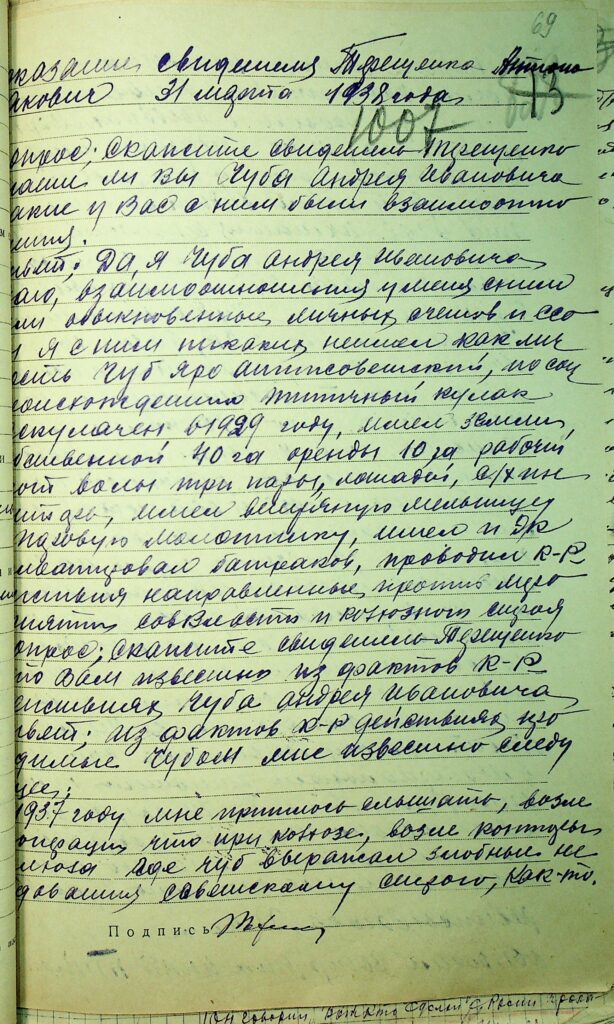 69
оказание свидетеля Терещенко Антона
акович 31 марта 1938 года 73
1007
опрос; Скажите свидетель Терещенко
наши ли Вы Чуба Андрея Ивановича
акие у Вас с ним были взаимоотно
ения.
твет: Да, я Чуба Андрея Ивановича
наю, взаимоотношения у меня с ним
ли обыкновенные личных счетов и ссо
я с ним никаких неимел как лич
ость Чуб яро антисоветский, по соц
оисхождению типичный кулак
скулачен в 1929 году, имел земли
бственной 40 га оренды 10 га рабочий
от волы три пары, лошадей, с/х ин
имел ветряную мельницу
молотилку, имел и эк
плоатировал батраков, проводил к-р
ствия направленные против меро
иятий совВласти и колхозного строя
опрос; Скажите свидетель Терещенко
то Вам известно из фактов к-р
ействиях Чуба Андрея Ивановича
твет; из фактов к-р действиях про
димые Чубом мне известно следу
щее:
1937 году мне пришлось слышать, возле
операции что при колхозе, возле конторы
лхоза где Чуб выражал злобные не
дования советскому строю, как-то.
Подпись
Он говорил, вот кто сделал С. России